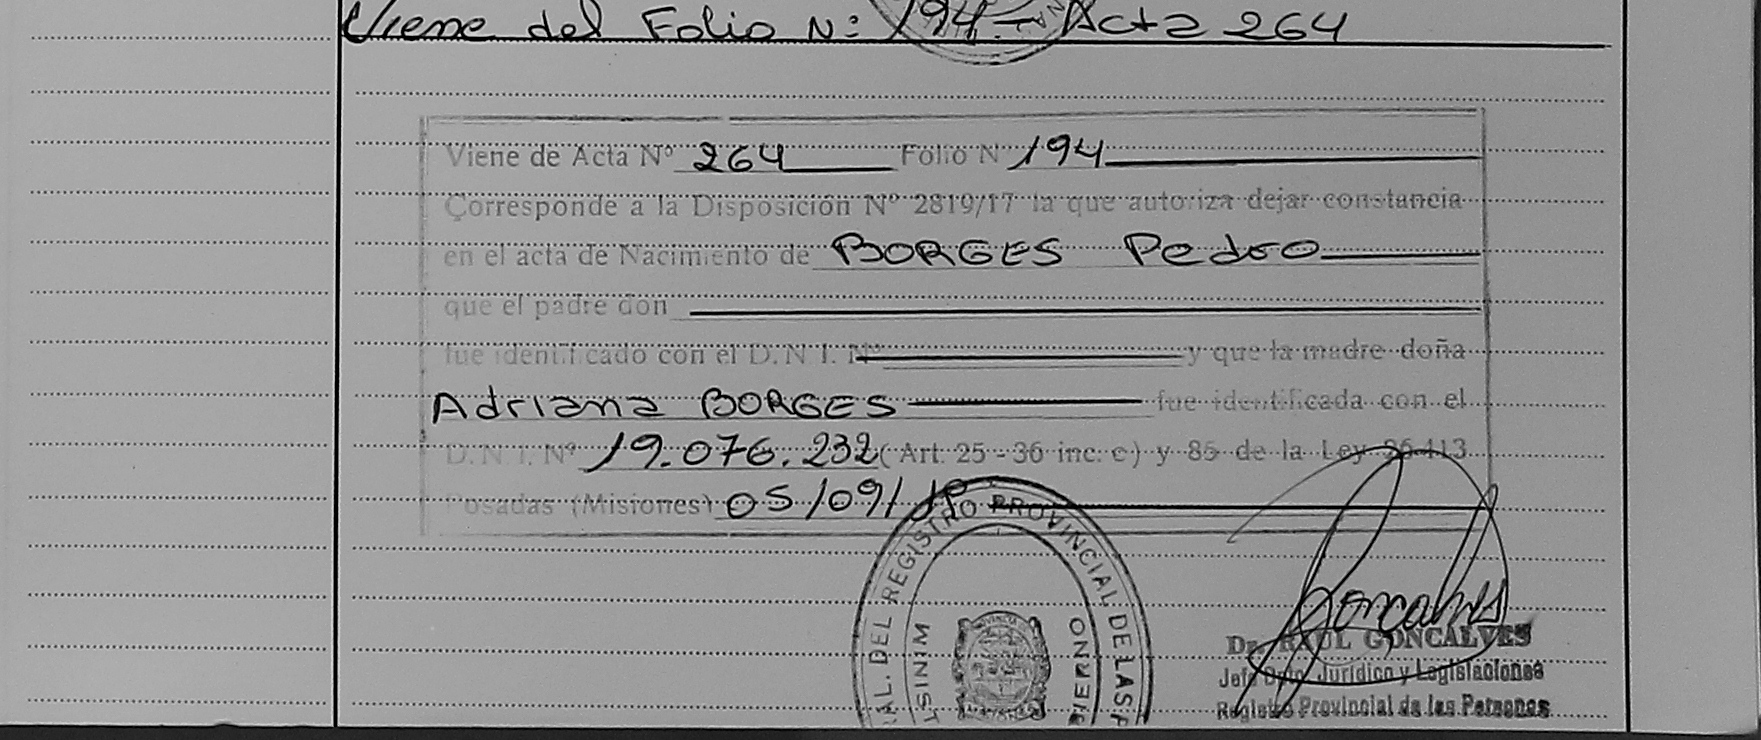 Viene del Folio N: 194 - Acta 264
Viene de Acta Nº 264 Folio N 194
Corresponde a la Disposición Nº 2819/17 la que autoriza dejar constancia
en el acta de Nacimiento de BORGES Pedro
que el padre don
fue identificado con el D.N.I. Nº y que la madre doña
Adriana BORGES fue identificada con el
D.N.I. Nº 19.076.232 (Art. 25 - 36 inc. c) y 85 de la Ley 26413
Posadas (Misiones) 05/09/
AL. DEL REGISTRO PROVINCIAL DE LAS P
MINIST
BIERNO
Dr. RAUL GONCALVES
Jefe Dpto. Jurídico y Legislaciones
Registro Provincial de las Personas